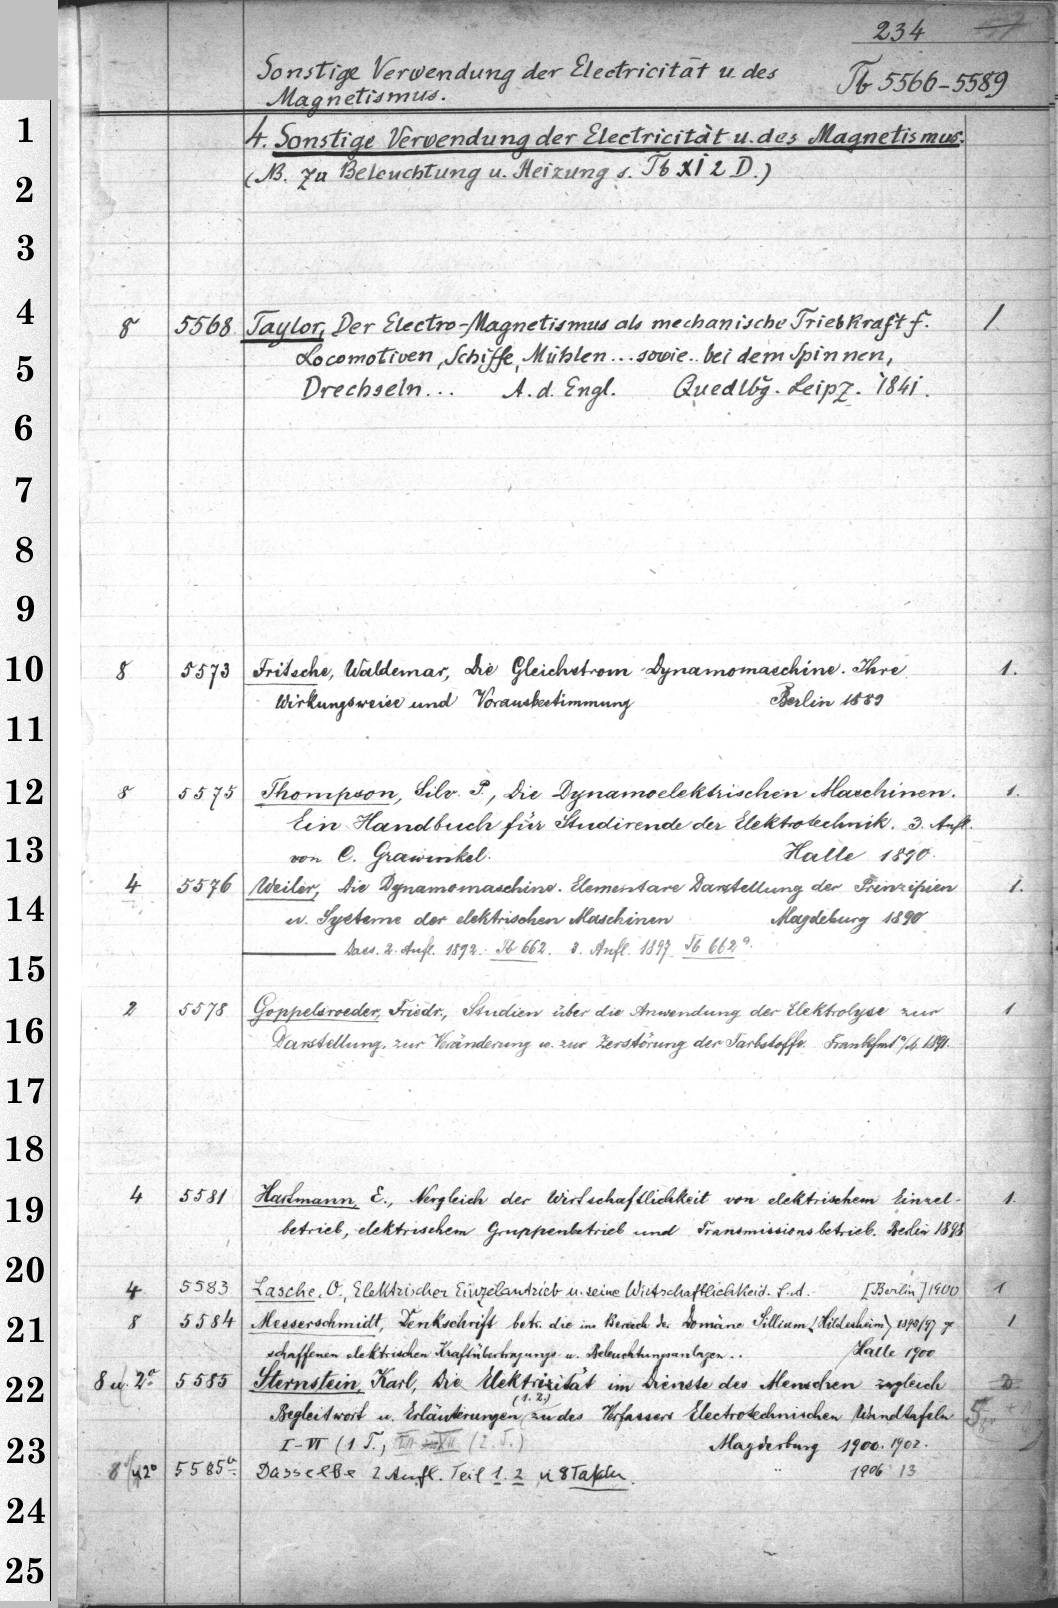 234
Sonstige Verwendung der Electricität u. des Tb 5566-5589
Magnetismus.
1
4. Sonstige Verwendung der Electricität u. des Magnetismus.
2
(NB. Zu Beleuchtung u. Heizung s. Tb XI 2 D.)
3
4
8 5568 Taylor, Der Electro-Magnetismus als mechanische Triebkraft f. 1
5
Locomotiven, Schiffe, Mühlen... sowie.. bei dem Spinnen,
Drechseln... A. d. Engl. Quedlbg. Leipz. 1841.
6
7
8
9
10
8 5573 Fritsche, Waldemar, Die Gleichstrom-Dynamomaschine. Ihre 1.
Wirkungsweise und Vorausbestimmung Berlin 1889
11
12
8 5575 Thompson, Silv. P., Die Dynamoelektrischen Maschinen. 1.
Ein Handbuch für Studirende der Elektrotechnik. 3. Aufl.
13
von C. Grawinkel. Halle 1890.
4 5576 Weiler, Die Dynamomaschine. Elementare Darstellung der Prinzipien 1.
14
u. Systeme der elektrischen Maschinen Magdeburg 1890
Dass. 2. Aufl. 1892. Tb 662. 3. Aufl. 1897 Tb 662a.
15
2 5578 Goppelsroeder, Friedr., Studien über die Anwendung der Elektrolyse zur 1
16
Darstellung, zur Veränderung u. zur Zerstörung der Farbstoffe. Frankfurt a/M. 1891.
17
18
4 5581 Hartmann, E., Vergleich der Wirtschaftlichkeit von elektrischem Einzel- 1.
19
betrieb, elektrischem Gruppenbetrieb und Transmissionsbetrieb. Berlin 1898
20
4 5583 Lasche, O., Elektrischer Einzelantrieb u. seine Wirtschaftlichkeit. S.A. [Berlin] 1900 1
21
8 5584 Messerschmidt, Denkschrift betr. die im Bereich der Domäne Sillium (Hildesheim) 1896/97 ge- 1
schaffenen elektrischen Kraftübertragungs- u. Beleuchtungsanlagen.. Halle 1900
22
8 u. 2° 5585 Sternstein, Karl, Die Elektrizität im Dienste des Menschen zugleich
(1. 2.)
Begleitwort u. Erläuterungen zu des Verfassers Electrotechnischen Wandtafeln
I-VI (1 T., (2. T.) Magdeburg 1900. 1902.
23
8° u 2° 5585a Dasselbe 2 Aufl. Teil 1. 2 u 8 Tafeln. " 1906 13
24
25